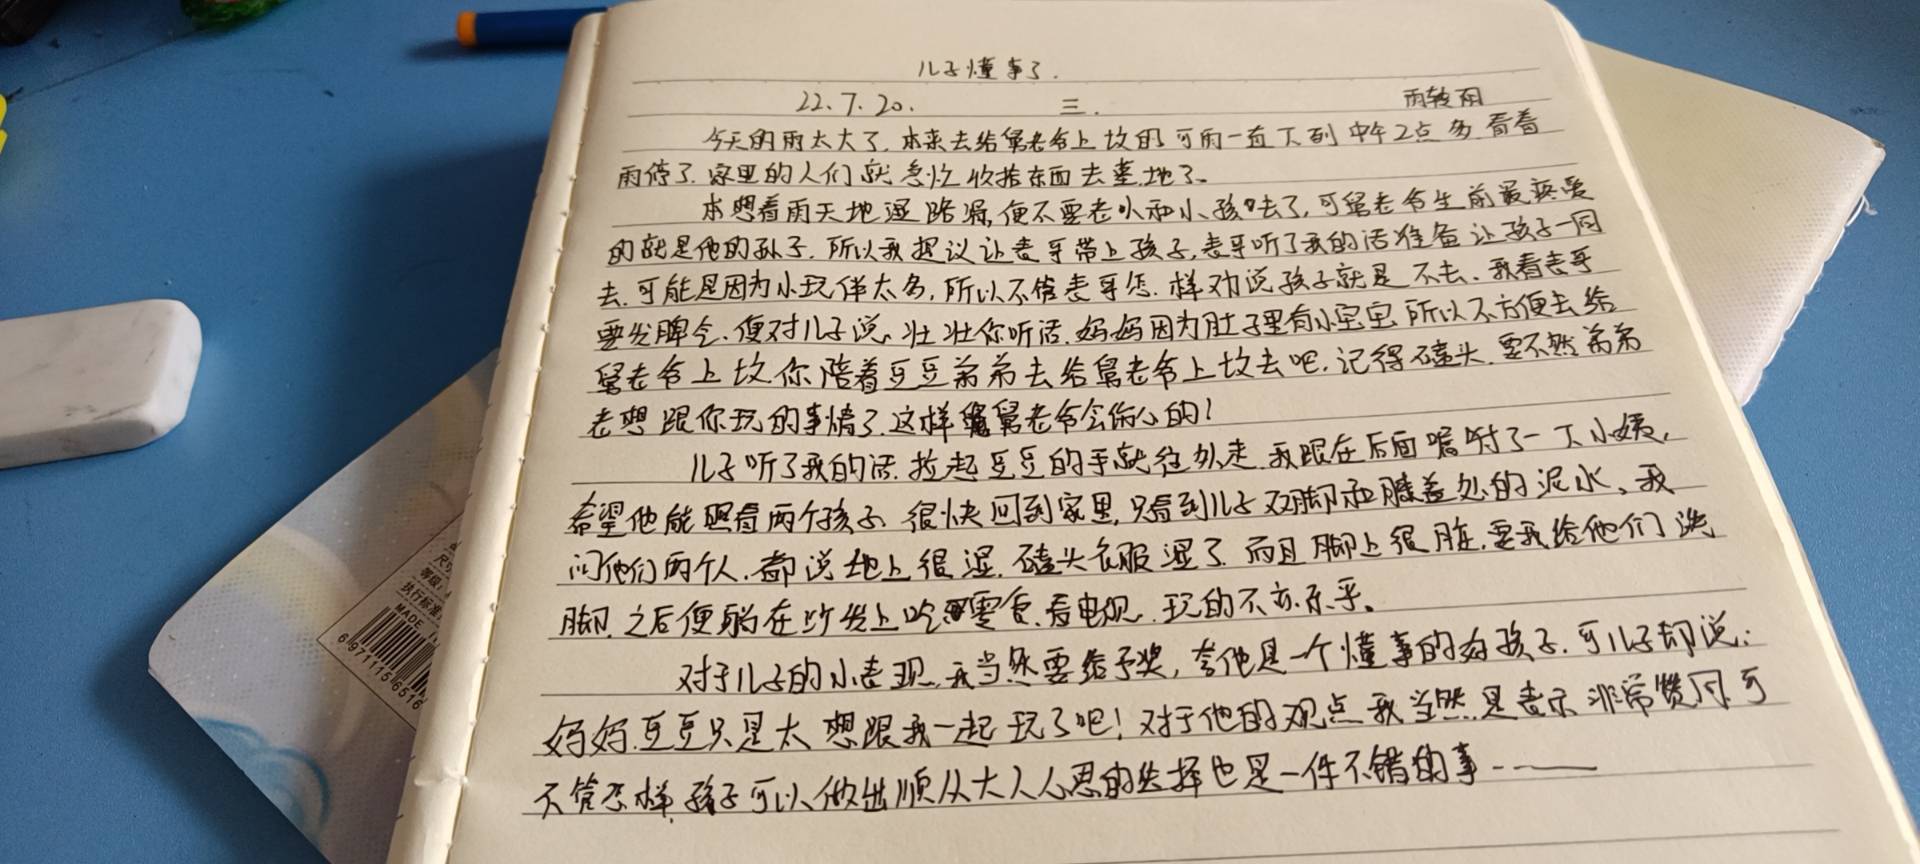 儿子懂事了.
22.7.20. 三. 雨转阴
今天的雨太大了.本来去给舅老爷上坟的可雨一直下到中午2点多.看着
雨停了.家里的人们就急忙收拾东西去墓地了。
本想着雨天地湿路滑,便不要老人和小孩去了,可舅老爷生前最疼爱
的就是他的孙子.所以我提议让表哥带上孩子,表哥听了我的话准备让孩子一同
去.可能是因为小玩伴太多,所以不管表哥怎.样劝说孩子就是不去.我看表哥
要发脾气.便对儿子说.壮壮你听话.妈妈因为肚子里有小宝宝所以不方便去给
舅老爷上坟你陪着豆豆弟弟去给舅老爷上坟去吧.记得磕头.要不然弟弟
老想跟你玩的事情了.这样舅老爷会伤心的!
儿子听了我的话.拉起豆豆的手就往外走.我跟在后面嘱咐了一下小姨,
希望他能照看两个孩子.很快回到家里,只看到儿子双脚和膝盖处的泥水、我
问他们两个人.都说地上很湿.磕头衣服湿了.而且脚上很脏.要我给他们洗
脚.之后便躺在沙发上吃零食.看电视.玩的不亦乐乎。
对于儿子的小表现.我当然要给予奖,夸他是一个懂事的好孩子.可儿子却说:
妈妈.豆豆只是太想跟我一起玩了吧!对于他的观点我当然是表示非常赞同.可
不管怎样.孩子可以做出顺从大人心思的选择也是一件不错的事……
MADE
6 971115 6516